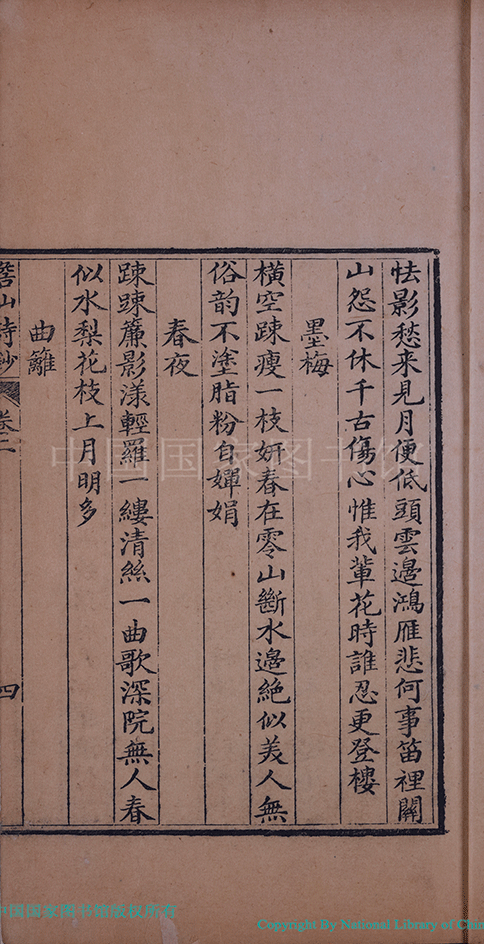 怯影愁来見月便低頭雲邊鴻雁悲何事笛裡關
山怨不休千古傷心惟我輩花時誰忍更登樓
墨梅
横空踈瘦一枝妍春在零山斷水邊絶似美人無
俗韵不塗脂粉自嬋娟
春夜
踈踈簾影漾輕羅一縷清絲一曲歌深院無人春
似水梨花枝上月明多
曲籬
山詩鈔 卷二 四
中国国家图书馆
中国国家图书馆版权所有
Copyright By National Library of Chi